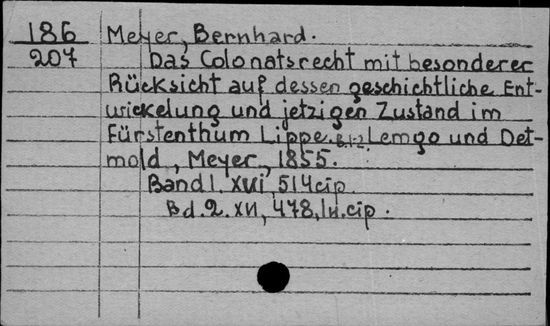 186 Meyer, Bernhard.
207 Das Colonatsrecht mit besonderer
Rücksicht auf dessen geschichtliche Ent-
wickelung und jetzigen Zustand im
Fürstenthum Lippe. B.1-2. Lemgo und Det-
mold, Meyer, 1855.
Band 1. XVI, 514 cip.
Bd. 2. XII, 478, cip.